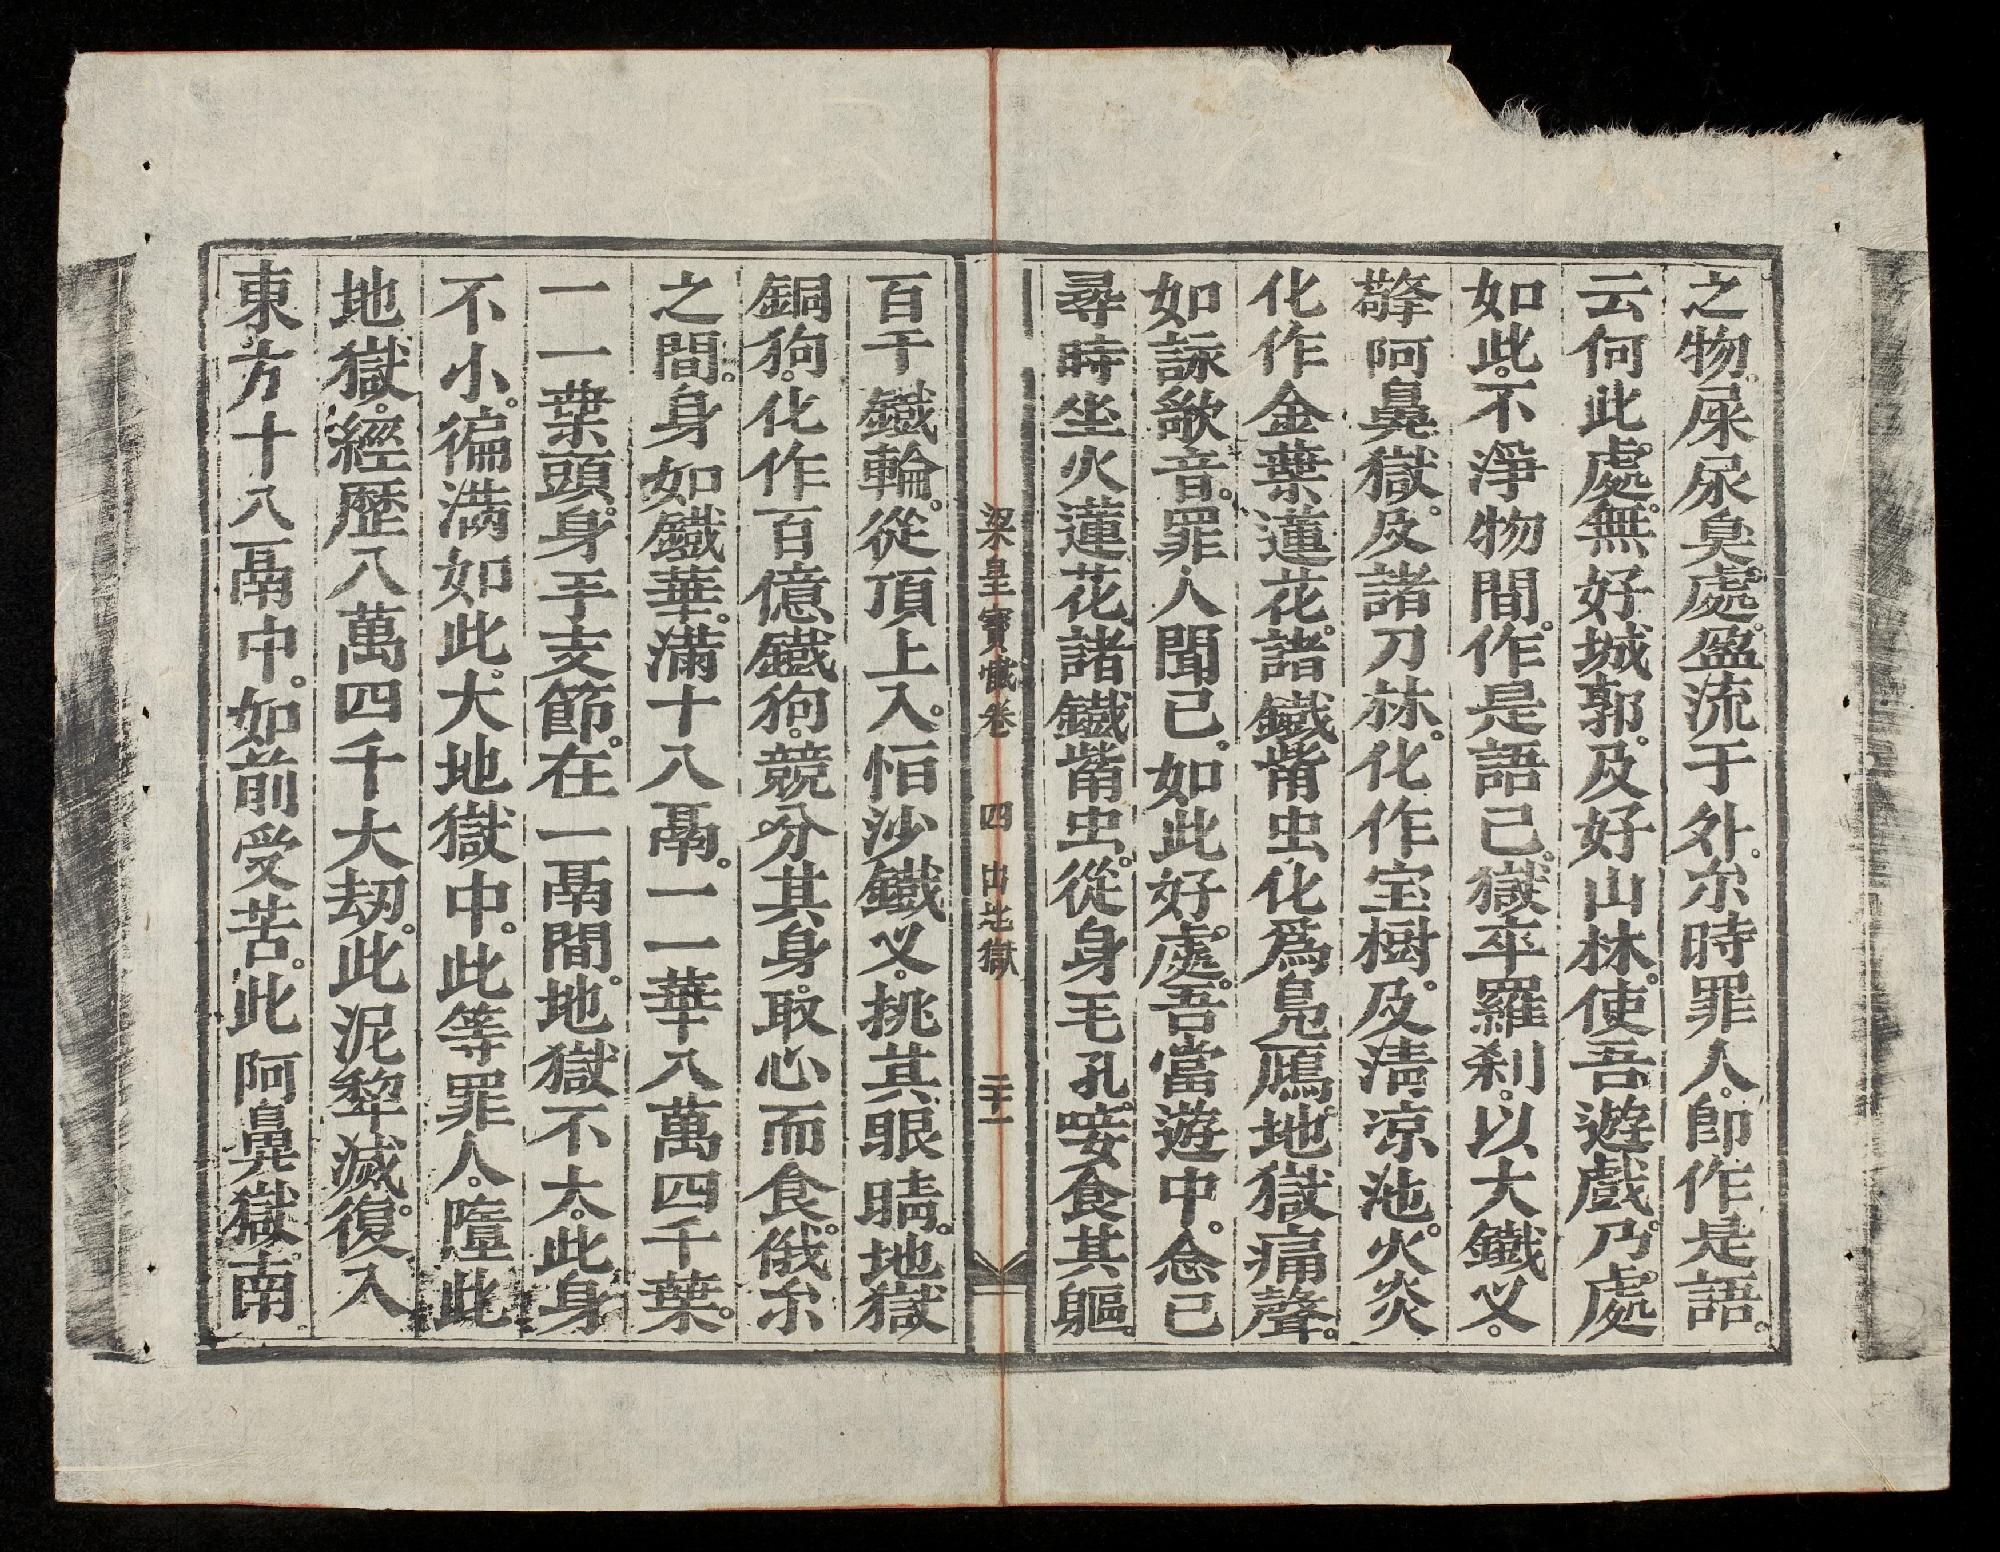 之物。屎尿臭處。盈流于外。尒時罪人。即作是語。
云何此處。無好城郭。及好山林。使吾遊戲。乃處
如此。不淨物間。作是語已。獄卒羅刹。以大鐵叉。
擎阿鼻獄。及諸刀林。化作宝樹。及清凉池。火炎
化作金葉蓮花。諸鐵觜虫化爲鳧鴈。地獄痛聲。
如詠歌音。罪人聞已。如此好處。吾當遊中。念已
尋時坐火蓮花。諸鐵觜虫。從身毛孔。唼食其軀。
梁皇寶懺卷 四 出地獄 二十一
百千鐵輪。從頂上入。恒沙鐵叉。挑其眼睛。地獄
銅狗。化作百億鐵狗。競分其身。取心而食。俄尒
之間。身如鐵華。滿十八鬲。一一華八萬四千葉。
一一葉頭。身手支節。在一鬲間。地獄不大。此身
不小。徧滿如此。大地獄中。此等罪人。墮此
地獄。經歷八萬四千大劫。此泥犂滅。復入
東方十八鬲中。如前受苦。此阿鼻獄。南